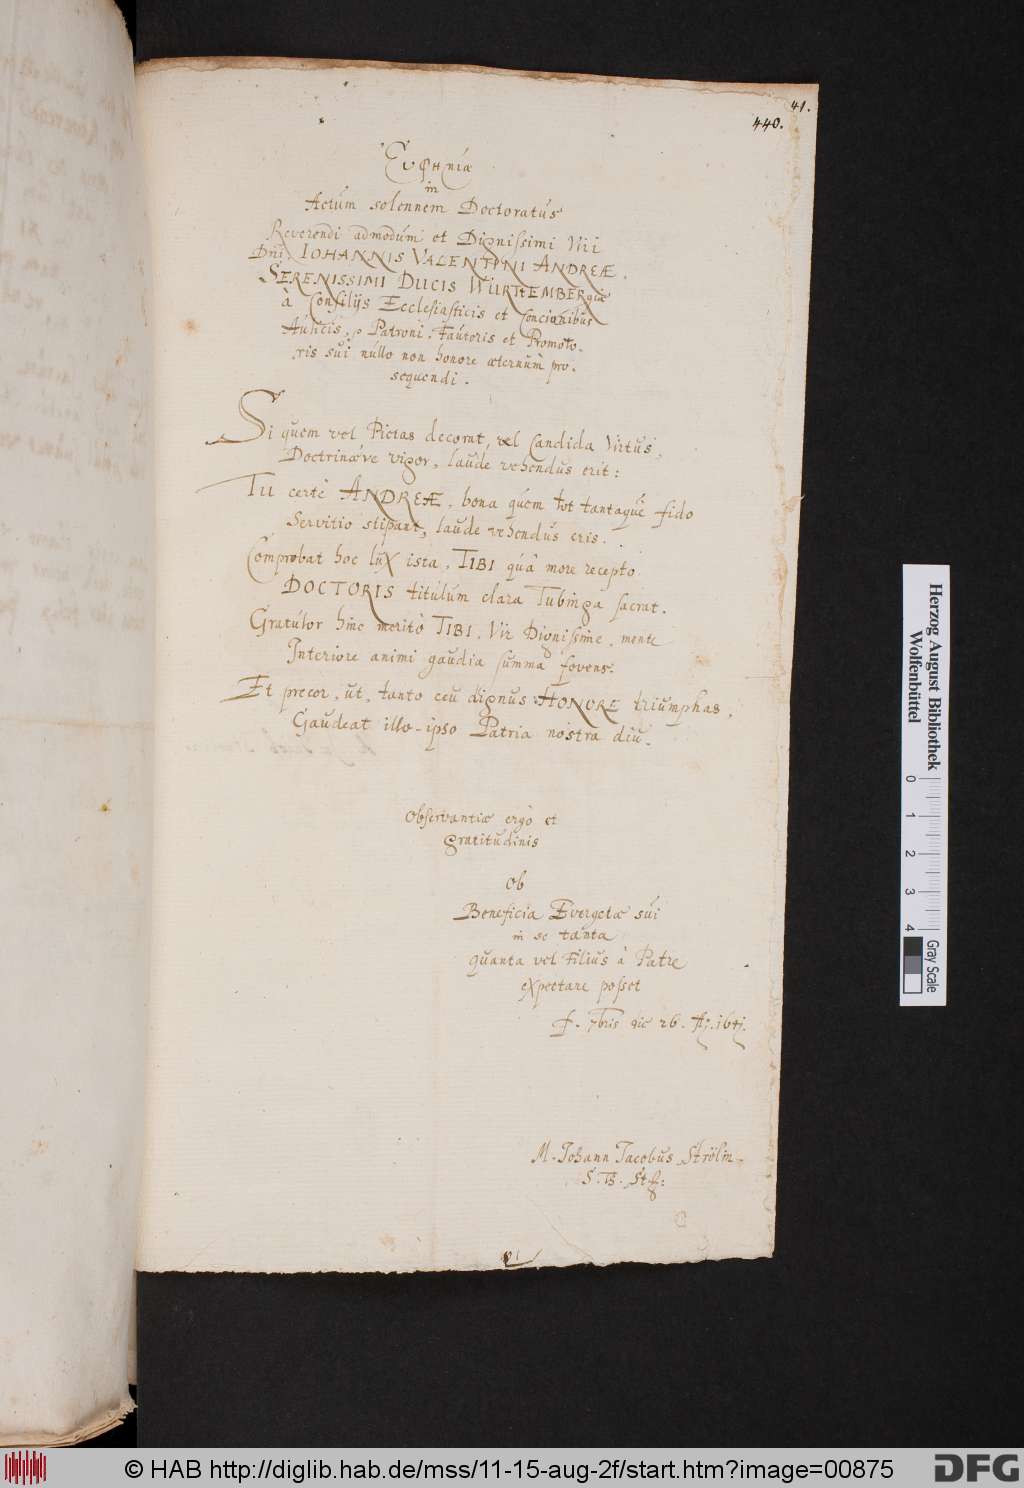 41.
440.
Ευφηνίæ
in
Actúm solennem Doctoratús
Reverendi admodúm et Dignissimi Viri
Dni. IOHANNIS VALENTINI ANDREÆ.
SERENISSIMI DUCIS WÜRTEMBERgici
à Consilijs Ecclesiasticis et Concionibus
Aúlicis, Patroni, Faútoris et Promoto-
ris súi núllo non honore æternúm pro-
sequendi.
Si quem vel Pietas decorat, vel Candida Virtús,
Doctrinæve vigor, laúde vehendus erit:
Tu certè ANDREÆ, bona qúem tot tantaqúe fido
Servitio stipant, laúde vehendus eris.
Comprobat hoc lúx ista, TIBI qúâ more recepto
DOCTORIS titúlum clara Tubinga sacrat.
Gratúlor hinc meritò TIBI, Vir Dignissime, mente
Interiore animi gaudia summa fovens.
Et precor, ut, tanto ceu dignus HONORE triúmphas,
Gaudeat illo-ipso Patria nostra diú.
Observantiæ ergò et
gratitudinis
Ob
Beneficia Evergetæ súi
in se tanta
quanta vel Filius à Patre
expectare posset
f. 7bris die 26. Aº. 1641.
M. Johann Jacobus Strölin.
S. Th. St:
Herzog August Bibliothek
Wolfenbüttel
0 1 2 3 4
Gray Scale
© HAB http://diglib.hab.de/mss/11-15-aug-2f/start.htm?image=00875
DFG